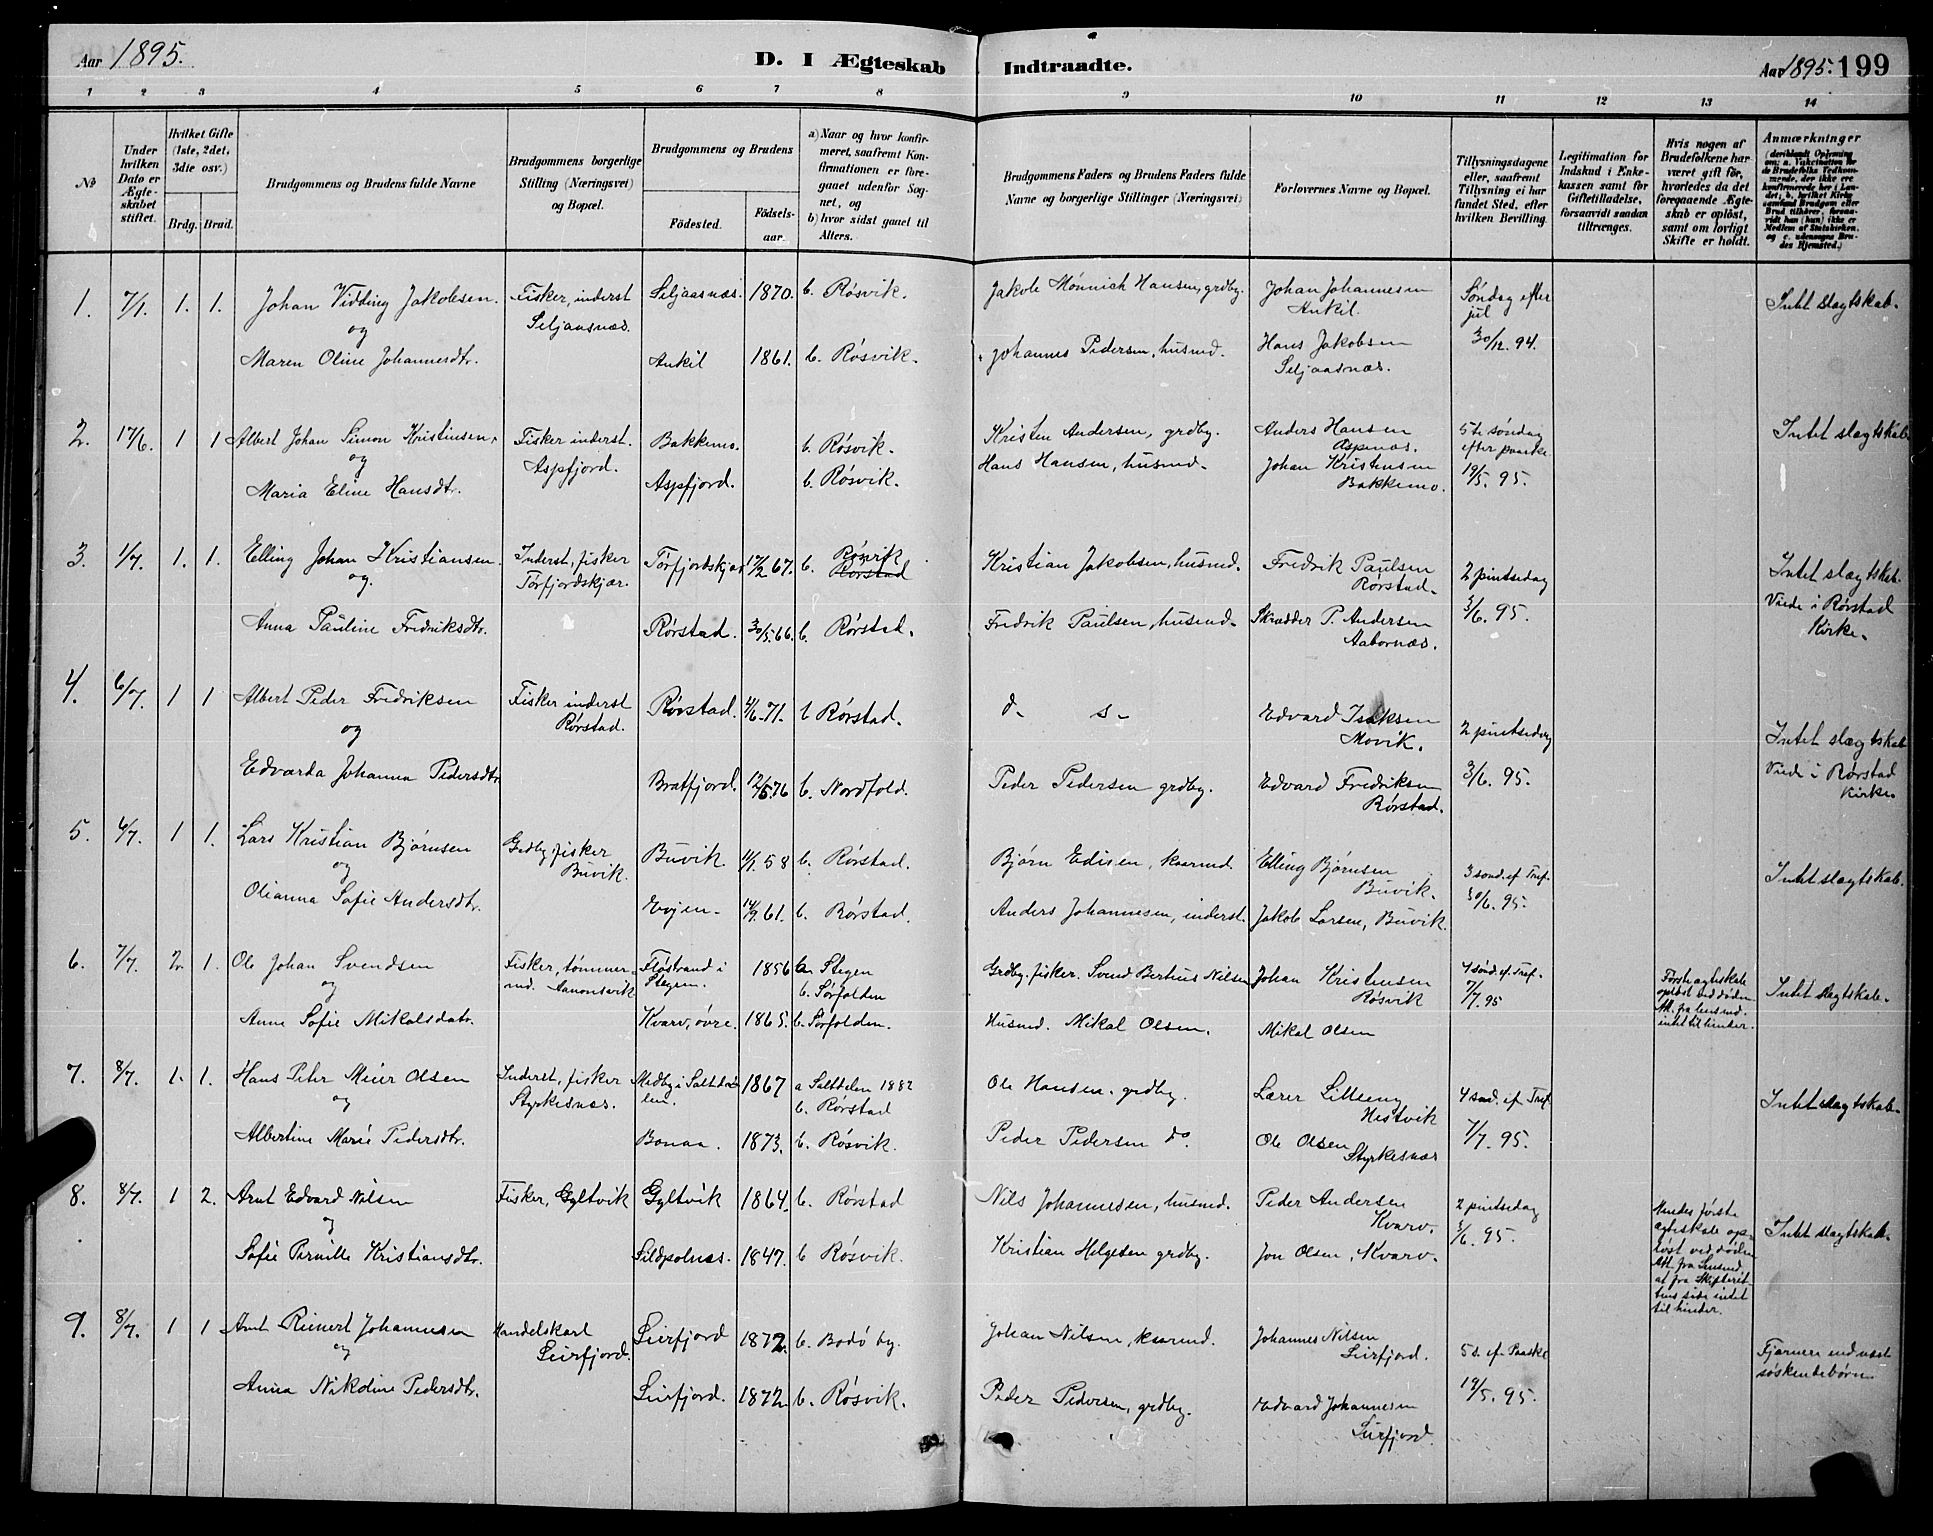 Aar 1895.
D. I Ægteskab Indtraadte.
Aar 1895. 199
1 2 3 4 5 6 7 8 9 10 11 12 13 14
No
Under hvilken Dato er Ægteskabet stiftet.
Hvilket Gifte (1ste, 2det, 3die osv.)
Brdg. Brud.
Brudgommens og Brudens fulde Navne
Brudgommens borgerlige Stilling (Næringsvei) og Bopæl.
Brudgommens og Brudens
Födested.
Födsels-aar.
a) Naar og hvor konfirmeret, saafremt Konfirmationen er foregaaet udenfor Sognet, og
b) hvor sidst gaaet til Alters.
Brudgommens Faders og Brudens Faders fulde Navne og borgerlige Stillinger (Næringsvei)
Forlovernes Navne og Bopæl.
Tillysningsdagene eller, saafremt Tillysning ei har fundet Sted, efter hvilken Bevilling.
Legitimation for Indskud i Enkekassen samt for Giftetilladelse, forsaavidt saadan tiltrænges.
Hvis nogen af Brudefolkene har været gift för, hvorledes da det foregaaende Ægteskab er oplöst, samt om lovligt Skifte er holdt.
Anmærkninger
(deriblandt Oplysning om: a. Vakcination for de Brudefolks Vedkommende, der ikke ere konfirmerede her i Landet; b. hvilket Kirkesamfund Brudgom eller Brud tilhörer, forsaavidt han (hun) ikke er Medlem af Statskirken, og c. udensogns Brudes Hjemsted.)
1. 7/1. 1. 1. Johan Vidding Jakobsen. Fisker, inderst Seljaasnæs. 1870. b. Røsvik. Jakob Mønnich Hansen, grdby. Johan Johannesen Søndag efter Intet slagtskab.
og Seljaasnæs. Ankil. jul
Maren Oline Johannesdtr. Ankil 1861. b. Røsvik. Johannes Pedersen, husmd. Hans Jakobsen 30/12. 94.
Seljaasnæs.
2. 17/6. 1 1 Albert Johan Simon Kristensen, Fisker inderst. Bakkemo. b. Røsvik. Kristen Andersen, grdby. Anders Hansen 5te søndag Intet slægtskab
og Aspfjord. Aspenæs. efter paaske
Maria Eline Hansdtr. Aspfjord. b. Røsvik. Hans Hansen, husmd. Johan Kristensen 19/5. 95.
Bakkemo.
3. 1/7. 1. 1. Elling Johan Kristiansen Inderst, fisker Torfjordskjær 17/2 67. b. Røsvik Rørstad Kristian Jakobsen, husmd. Fredrik Paulsen 2 pintsedag Intet slægtskab.
og. Torfjordskjær. Rørstad. 3/6. 95. Viede i Rørstad
Anna Pauline Fredriksdtr. Rørstad. 30/5. 66. b. Rørstad. Fredrik Paulsen, husmd. Skrædder P. Andersen Kirke.
Aabornæs.
4. 6/7. 1 1 Albert Peder Fredriksen Fisker inderst Rørstad. 4/6. 71. b Rørstad. d. s. Edvard Isaksen 2 pintsedag Intet slægtskab
og Rørstad. Movik. 3/6. 95. Viede i Rørstad
Edvarda Johanna Pedersdtr. Bratfjord. 12/5 76 b. Nordfold. Peder Pedersen grdby. Edvard Fredriksen Kirke.
Rørstad.
5. 6/7. 1 1. Lars Kristian Bjørnsen Grdby. fisker Buvik 58 b. Rørstad. Bjørn Edisen, kaarmd. Elling Bjørnsen 3 sønd. ef. Tref. Intet slagtskab.
og Buvik. Buvik. 30/6. 95.
Olianna Sofie Andersdtr. Evjen. 61. b. Rørstad. Anders Johannesen, inderst. Jakob Larsen, Buvik.
6. 7/7. 2. 1. Ole Johan Svendsen Fisker, tømmer- Fløstrand i 1856 a. Stegen Grdby. fisker. Svend Bertius Nilsen Johan Kristensen 4 sønd. ef. Tref. Første ægteskab Intet slagtskab.
og md. Aanonsvik Stegen. b. Sørfolden Røsvik 7/7. 95 opløst ved døden
Anne Sofie Mikalsdatr. Kvarv, øvre. 1865. b. Sørfolden. Husmd. Mikal Olsen. Mikal Olsen Att. fra lensmd. intet til hinder.
7. 8/7. 1. 1. Hans Peter Meier Olsen Inderst, fisker Medby i Saltda- 1867 a Saltdalen 1882 Ole Hansen, grdby. Lærer Lilleeng 4 sønd. ef Tref. Intet slagtskab.
og Styrkesnæs. len. b. Rørstad Hestvik
Albertine Marie Pedersdtr. Bonaa. 1873. b. Røsvik. Peder Pedersen do. Ole Olsen 7/7. 95.
Styrkesnæs
8. 8/7. 1 2. Arnt Edvard Nilsen Fisker, Gyltvik Gyltvik 1864. b. Rørstad Nils Johannesen, husmd. Peder Andersen 2 pintsedag Hendes første Intet slagtskab.
og Kvarv. 3/6. 95. ægteskab op-
Sofie Pernille Kristiansdtr. Sildpolnæs. 1847. b Røsvik. Kristian Helgesen grdby. Jon Olsen, Kvarv. løst ved døden
Att. fra Lensmd.
at fra Skifteret-
tens side intet
til hinder.
9. 8/7. 1 1 Arnt Rienert Johannesen Handelskarl Leirfjord 1872. b. Bodø by. Johan Nilsen, kaarmd. Johannes Nilsen 5 s. ef. Paaske Fjernere end næst
og Leirfjord. Leirfjord. 19/5. 95. søskendebørn.
Anna Nikoline Pedersdtr. Leirfjord. 1872. b. Røsvik. Peder Pedersen, grdby. Edvard Johannesen
Leirfjord.